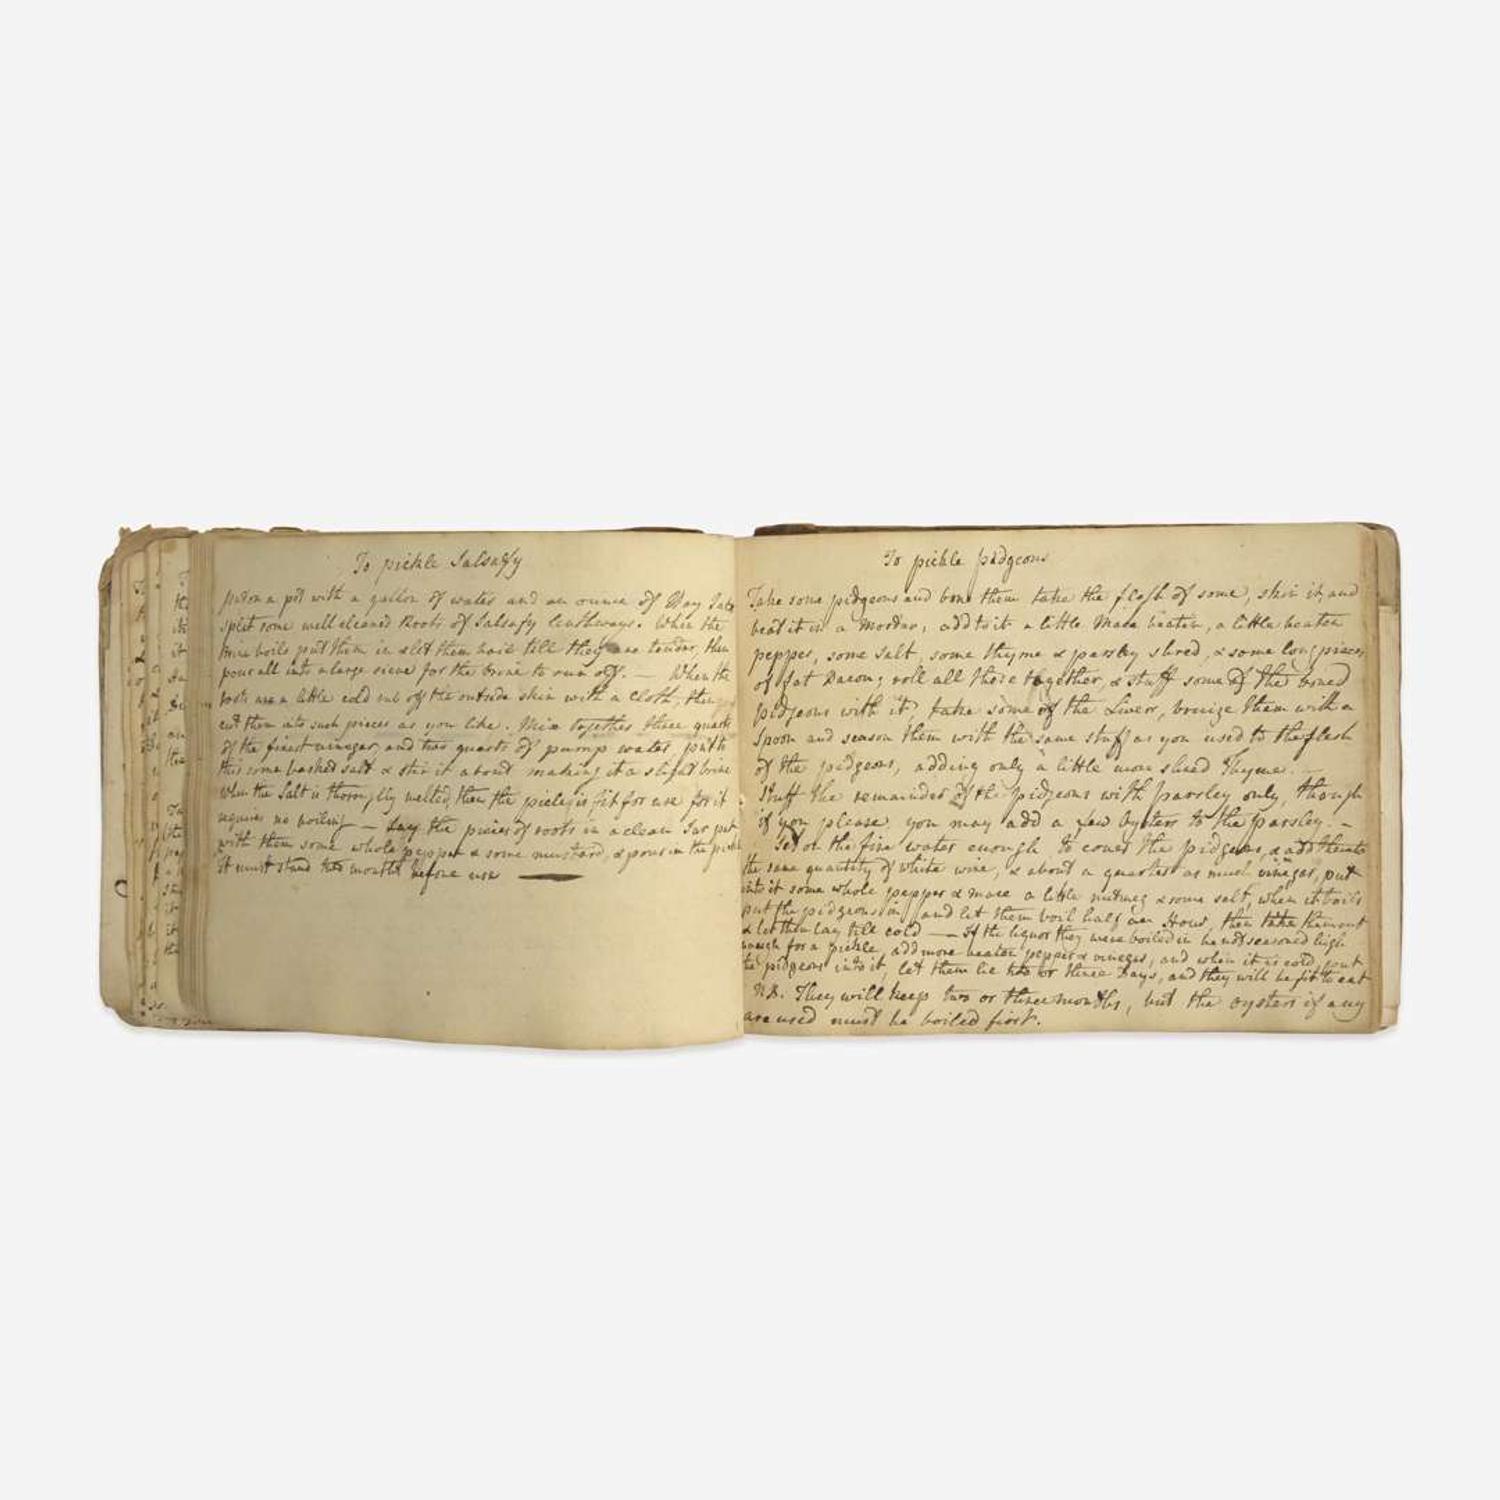 To pickle Salsafy
put on a pot with a gallon of water and an ounce of Bay Salt
split some well cleaned Roots of Salsafy lenthways. When the
brine boils put them in & let them boil till they are tender, then
pour all into a large sieve for the brine to run off. — When the
roots are a little cold rub off the outside skin with a cloth, then
cut them into such pieces as you like. Mix together three quarts
of the finest vinegar, and two quarts of pump water, put to
this some basked salt & stir it about making it a slight brine
when the Salt is thoroughly melted, then the pickle is fit for use for it
requires no boiling — Lay the pieces of roots in a clean Jar put
with them some whole pepper & some mustard, & pour in the pickle
it must stand two months before use
To pickle pidgeons
Take some pidgeons and bone them take the flesh of some, skin it, and
beat it in a Mortar, add to it a little Mace beaten, a little beaten
pepper, some salt, some thyme & parsley shred, & some long pieces
of fat Bacon; roll all these together, & stuff some of the boned
pidgeons with it, take some of the Liver, bruize them with a
Spoon and season them with the same stuff as you used to the flesh
of the pidgeons, adding only a little more shred Thyme. —
Stuff the remainder of the pidgeons with parsley only, though
if you please, you may add a few Oysters to the parsley. —
Set on the fire water enough to cover the pidgeons, & add thereto
the same quantity of white wine, & about a quarter as much vinegar, put
into it some whole pepper & mace a little nutmeg & some salt, when it boils
put the pidgeons in and let them boil half an Hour, then take them out
& let them lay till cold — If the liquor they were boiled in be not seasoned high
enough for a pickle, add more beaten pepper & vinegar, and when it is cold, put
the pidgeons into it, let them lie two or three Days, and they will be fit to eat
N.B. They will keep two or three months, but the oysters if any
are used must be boiled first.